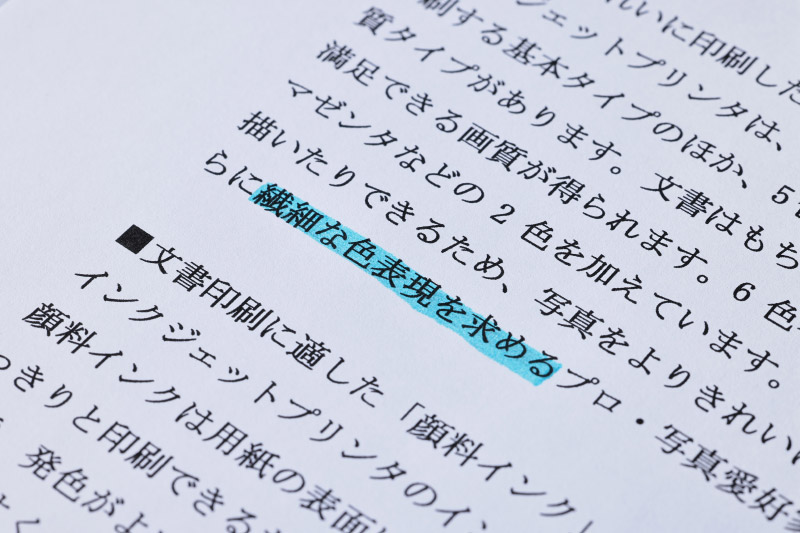 れいに印刷した
ジェットプリンタは、
刷する基本タイプのほか、5
質タイプがあります。文書はもち
満足できる画質が得られます。6 色
マゼンタなどの 2 色を加えています。
描いたりできるため、写真をよりきれい
らに繊細な色表現を求めるプロ・写真愛好
■文書印刷に適した「顔料インク」
インクジェットプリンタのイン
顔料インクは用紙の表面
っきりと印刷できる
発色がよ